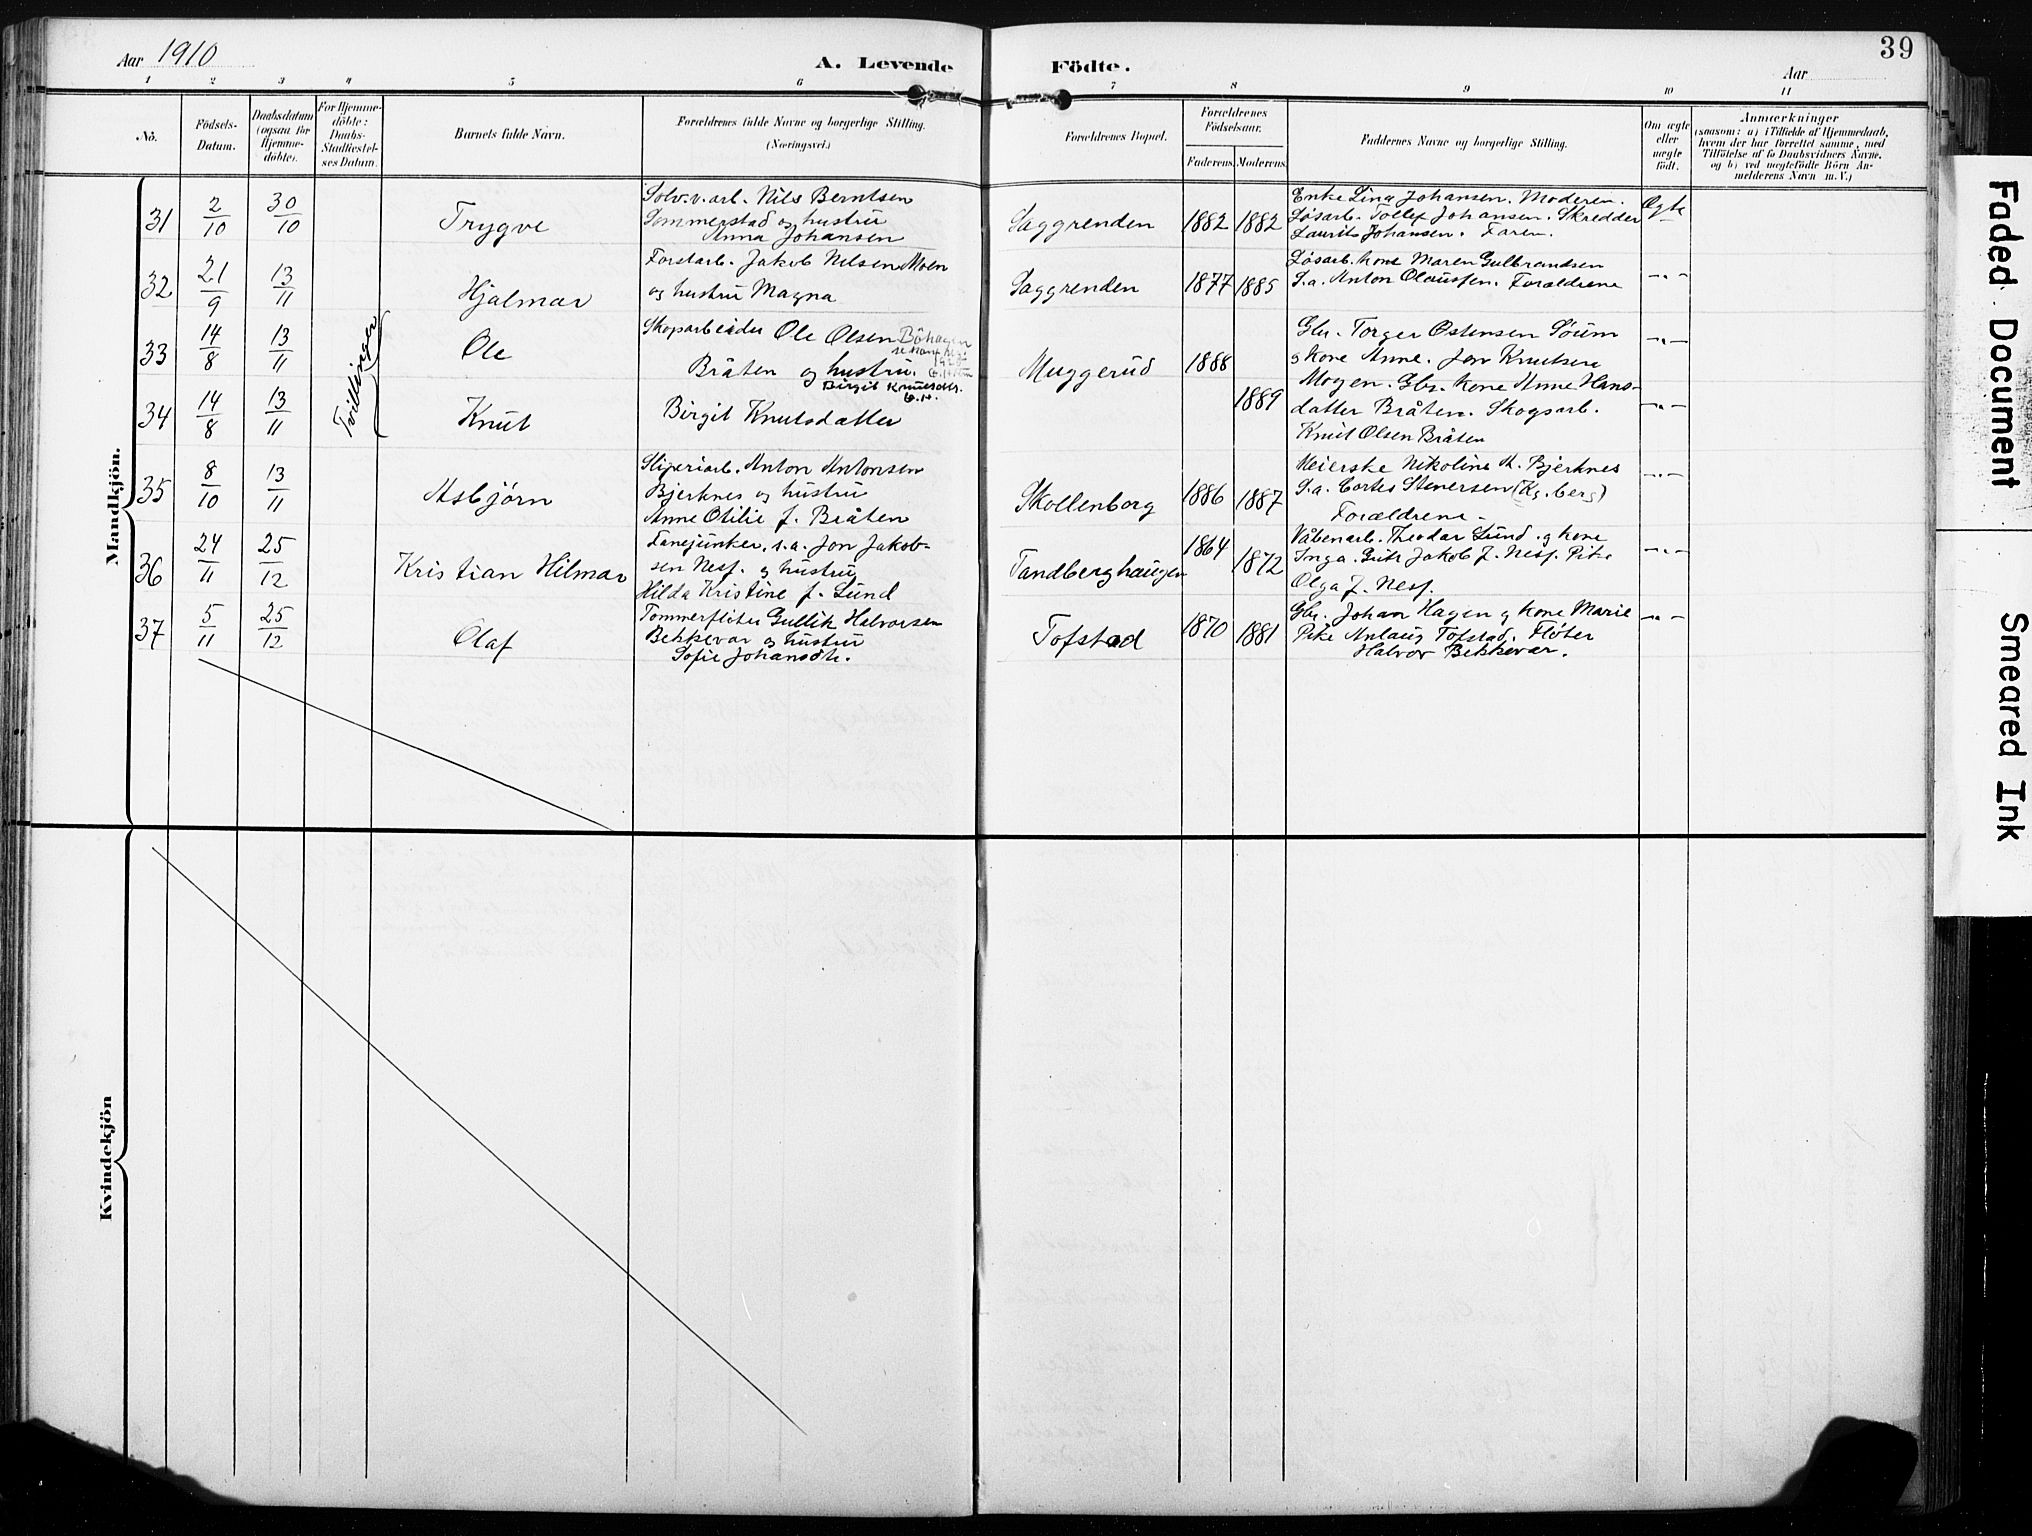 Aar 1910
A. Levende Födte.
Aar
39
1 2 3 4 5 6 7 8 9 10 11
No.
Födsels-Datum.
Daabsdatum (ogsaa for Hjemme-döbte).
For Hjemme-döbte: Daabs-Stadfæstel-ses Datum.
Barnets fulde Navn.
Forældrenes fulde Navne og borgerlige Stilling. (Næringsvei.)
Forældrenes Bopæl.
Forældrenes Födselsaar.
Faderens. Moderens.
Faddernes Navne og borgerlige Stilling.
Om ægte eller uægte födt.
Anmærkninger
(saasom: a) i Tilfælde af Hjemmedaab, hvem der har forrettet samme, med Tilföielse af to Daabsvidners Navne, og b) ved uægtefödte Börn An-melderens Navn m. V.)
Mandkjön.
31 2/10 30/10 Trygve
Sølv.v.arb. Nils Berntsen
Sommerstad og hustru
Anna Johansen
Saggrenden 1882 1882
Enke Lina Johansen. Moderen.
Løsarb. Tollef Johansen. Skredder
Laurits Johansen. Faren.
Ægte
32 21/9 13/11 Hjalmar
Forstarb. Jakob Nilsen Moen
og hustru Magna
Saggrenden 1877 1885
Løsarb. kone Maren Gulbrandsen
S.a. Anton Olaussen. Forældrene
-"-
Tvillinger
33 14/8 13/11 Ole
Skogsarbeider Ole Olsen Böhagen
Bråten og hustru.
Birgit Knutsdtr.
Muggerud 1888
Gbr. Torger Østensen Søum
og kone Anne. Jon Knutsen
-"-
34 14/8 13/11 Knut
Birgit Knutsdatter
1889
Mogen. Gbr. kone Anne Hans-
datter Bråten. Skogsarb.
Knut Olsen Bråten
-"-
35 8/10 13/11 Asbjørn
Sliperiarb. Anton Antonsen
Bjerknes og hustru
Anne Otilie f. Bråten
Skollenborg 1886 1887
Meierske Nikoline A. Bjerknes
S.a. Cortes Stenersen (Kg.berg)
Forældrene -
-"-
36 24/11 25/12 Kristian Hilmar
Fanejunker, s.a. Jon Jakob-
sen Nesf. og hustru
Hilda Kristine f. Lund
Tandberghaugen 1864 1872
Våbenarb. Theodor Lund og kone
Inga. Gutt Jakob J. Nesf. Pike
Olga J. Nesf.
-"-
37 5/11 25/12 Olaf
Tømmerfløter Gullik Halvorsen
Bekkevar og hustru
Sofie Johansdtr.
Tofstad 1870 1881
Gbr. Johan Hagen og kone Marie
Pike Anlaug Tofstad. Fløter
Halvor Bekkevar.
-"-
Kvindekjön
Faded Document
Smeared Ink